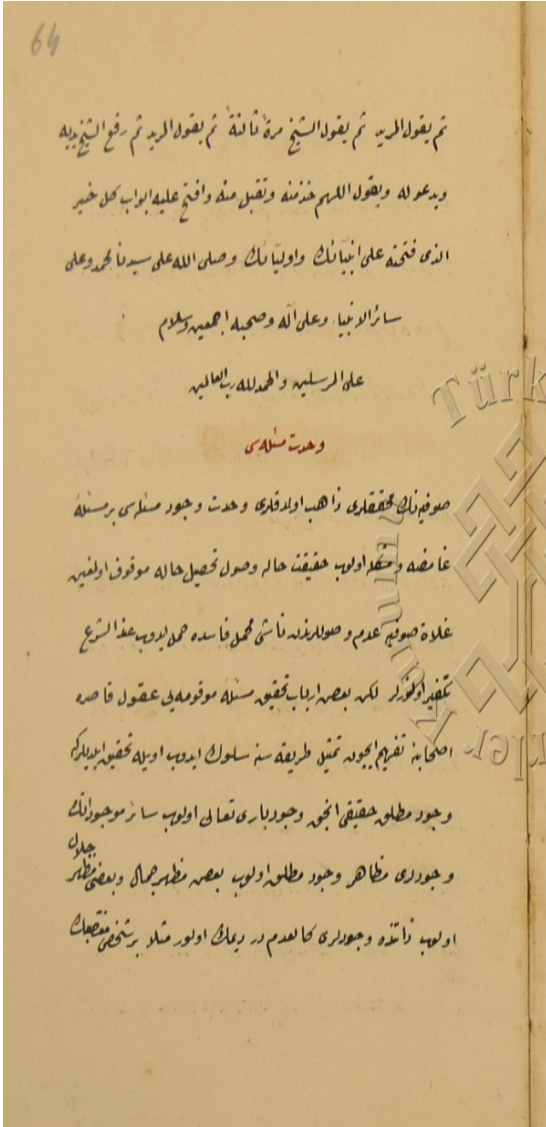 64
ثم يقول المريد ثم يقول الشيخ مرة ثالثة ثم يقول المريد ثم رفع الشيخ يديه
ويدعو له ويقول اللهم خذ منه وتقبل منه وافتح عليه ابواب كل خير
الذى فتحته على انبيائك واوليائك وصلى الله على سيدنا محمد وعلى
سائر الانبياء وعلى آله وصحبه اجمعين وسلام
على المرسلين والحمد لله رب العالمين
وحدت مسئله سى
صوفيه نك محققلرى ذاهب اولدقلرى وحدت وجود مسئله سى بر مسئلهٔ
غامضه و مشكله اولوب حقيقت حاله وصول تحصيل حاله موقوف اولمغين
غلاة صوفيه عدم وصوللرندن ناشى محمل فاسده حمل ايدوب عند الشرع
تكفير اولنورلر لكن بعض ارباب تحقيق مسئله موقومه يى عقول قاصره
اصحابنه تفهيم ايچون تمثيل طريقه سنه سلوك ايدوب اويله تحقيق ايلديلركه
وجود مطلق حقيقى انجق وجود بارى تعالى اولوب سائر موجوداتك
وجودلرى مظاهر وجود مطلق اولوب بعض مظهر جمال وبعضى مظهر جلال
اولوب ذاتنده وجودلرى كالعدم در ديمك اولور مثلا بر شخص
Türk